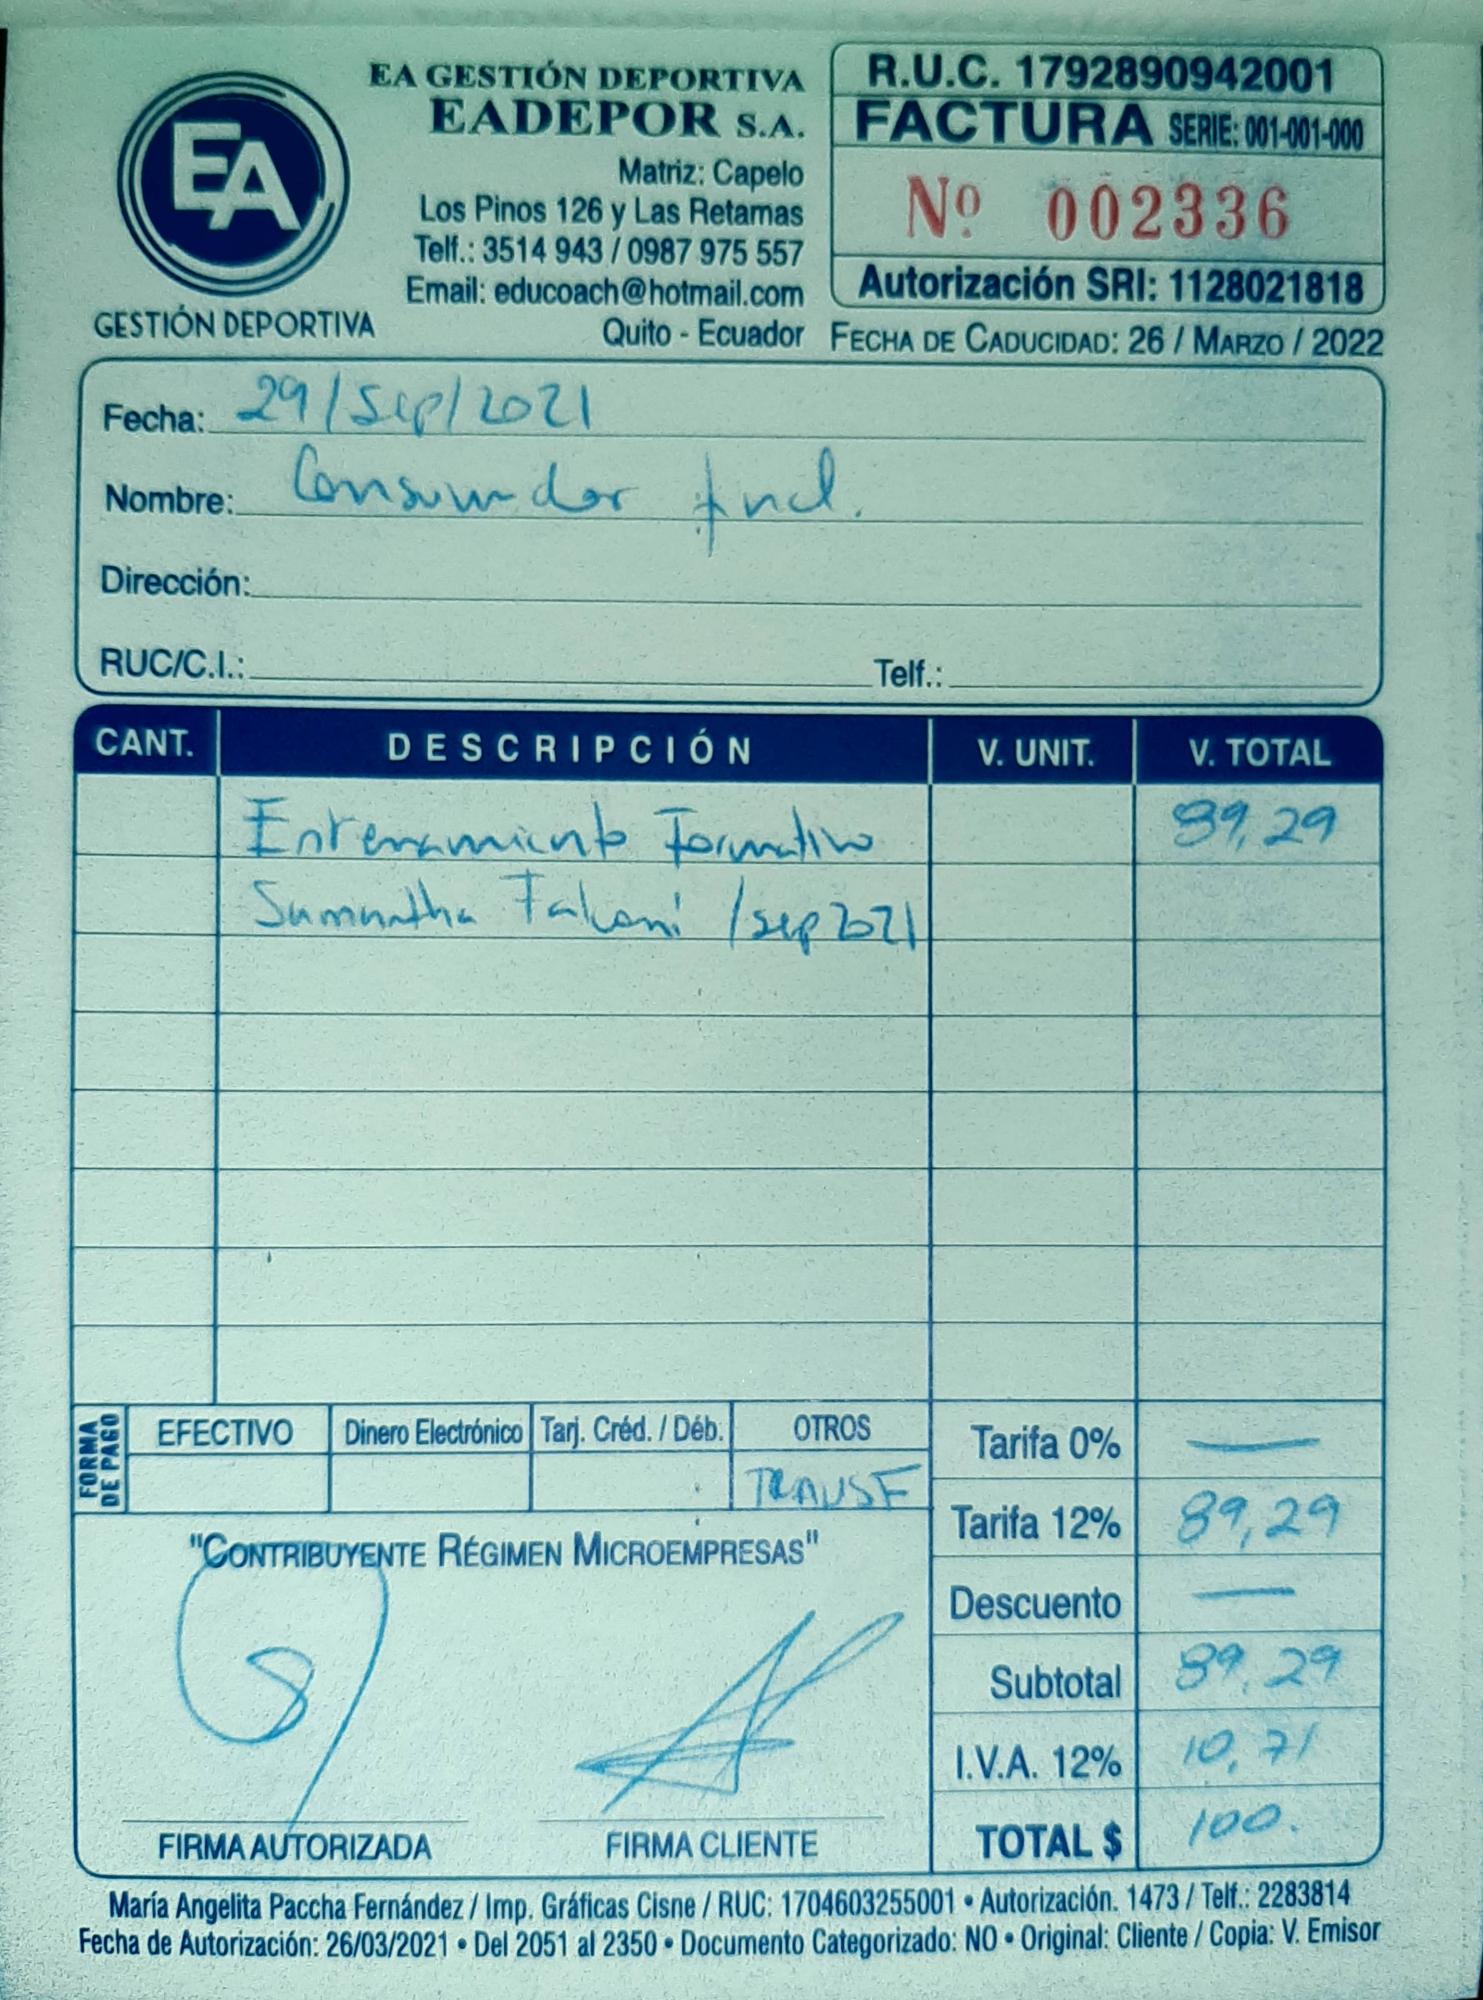 EA GESTIÓN DEPORTIVA
EADEPOR S.A.
Matriz: Capelo
Los Pinos 126 y Las Retamas
Telf.: 3514 943 / 0987 975 557
Email: educoach@hotmail.com
Quito - Ecuador
EA
GESTIÓN DEPORTIVA
R.U.C. 1792890942001
FACTURA SERIE: 001-001-000
Nº 002336
Autorización SRI: 1128021818
FECHA DE CADUCIDAD: 26 / MARZO / 2022
Fecha: 29/Sep/2021
Nombre: Consumidor final.
Dirección:
RUC/C.I.: Telf.:
CANT. DESCRIPCIÓN V. UNIT. V. TOTAL
Entrenamiento Formativo 89,29
Samantha Falconi /sep 2021
FORMA DE PAGO
EFECTIVO Dinero Electrónico Tarj. Créd. / Déb. OTROS
TRANSF
Tarifa 0% —
Tarifa 12% 89,29
Descuento —
Subtotal 89,29
I.V.A. 12% 10,71
TOTAL $ 100.
"CONTRIBUYENTE RÉGIMEN MICROEMPRESAS"
FIRMA AUTORIZADA FIRMA CLIENTE
María Angelita Paccha Fernández / Imp. Gráficas Cisne / RUC: 1704603255001 • Autorización. 1473 / Telf.: 2283814
Fecha de Autorización: 26/03/2021 • Del 2051 al 2350 • Documento Categorizado: NO • Original: Cliente / Copia: V. Emisor